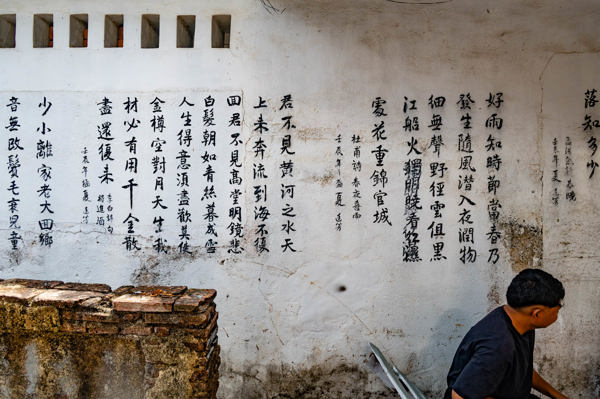 落知多少
孟浩然詩 春曉
壬辰年夏
好雨知時節當春乃
發生隨風潛入夜潤物
細無聲野徑雲俱黑
江船火獨明曉看紅濕
處花重錦官城
杜甫詩 春夜喜雨
壬辰年
君不見黃河之水天
上來奔流到海不復
回君不見高堂明鏡悲
白髮朝如青絲暮成雪
人生得意須盡歡莫使
金樽空對月天生我
材必有用千金散
盡還復來
李白詩句
將進酒
壬辰年 夏
少小離家老大回鄉
音無改鬢毛衰兒童